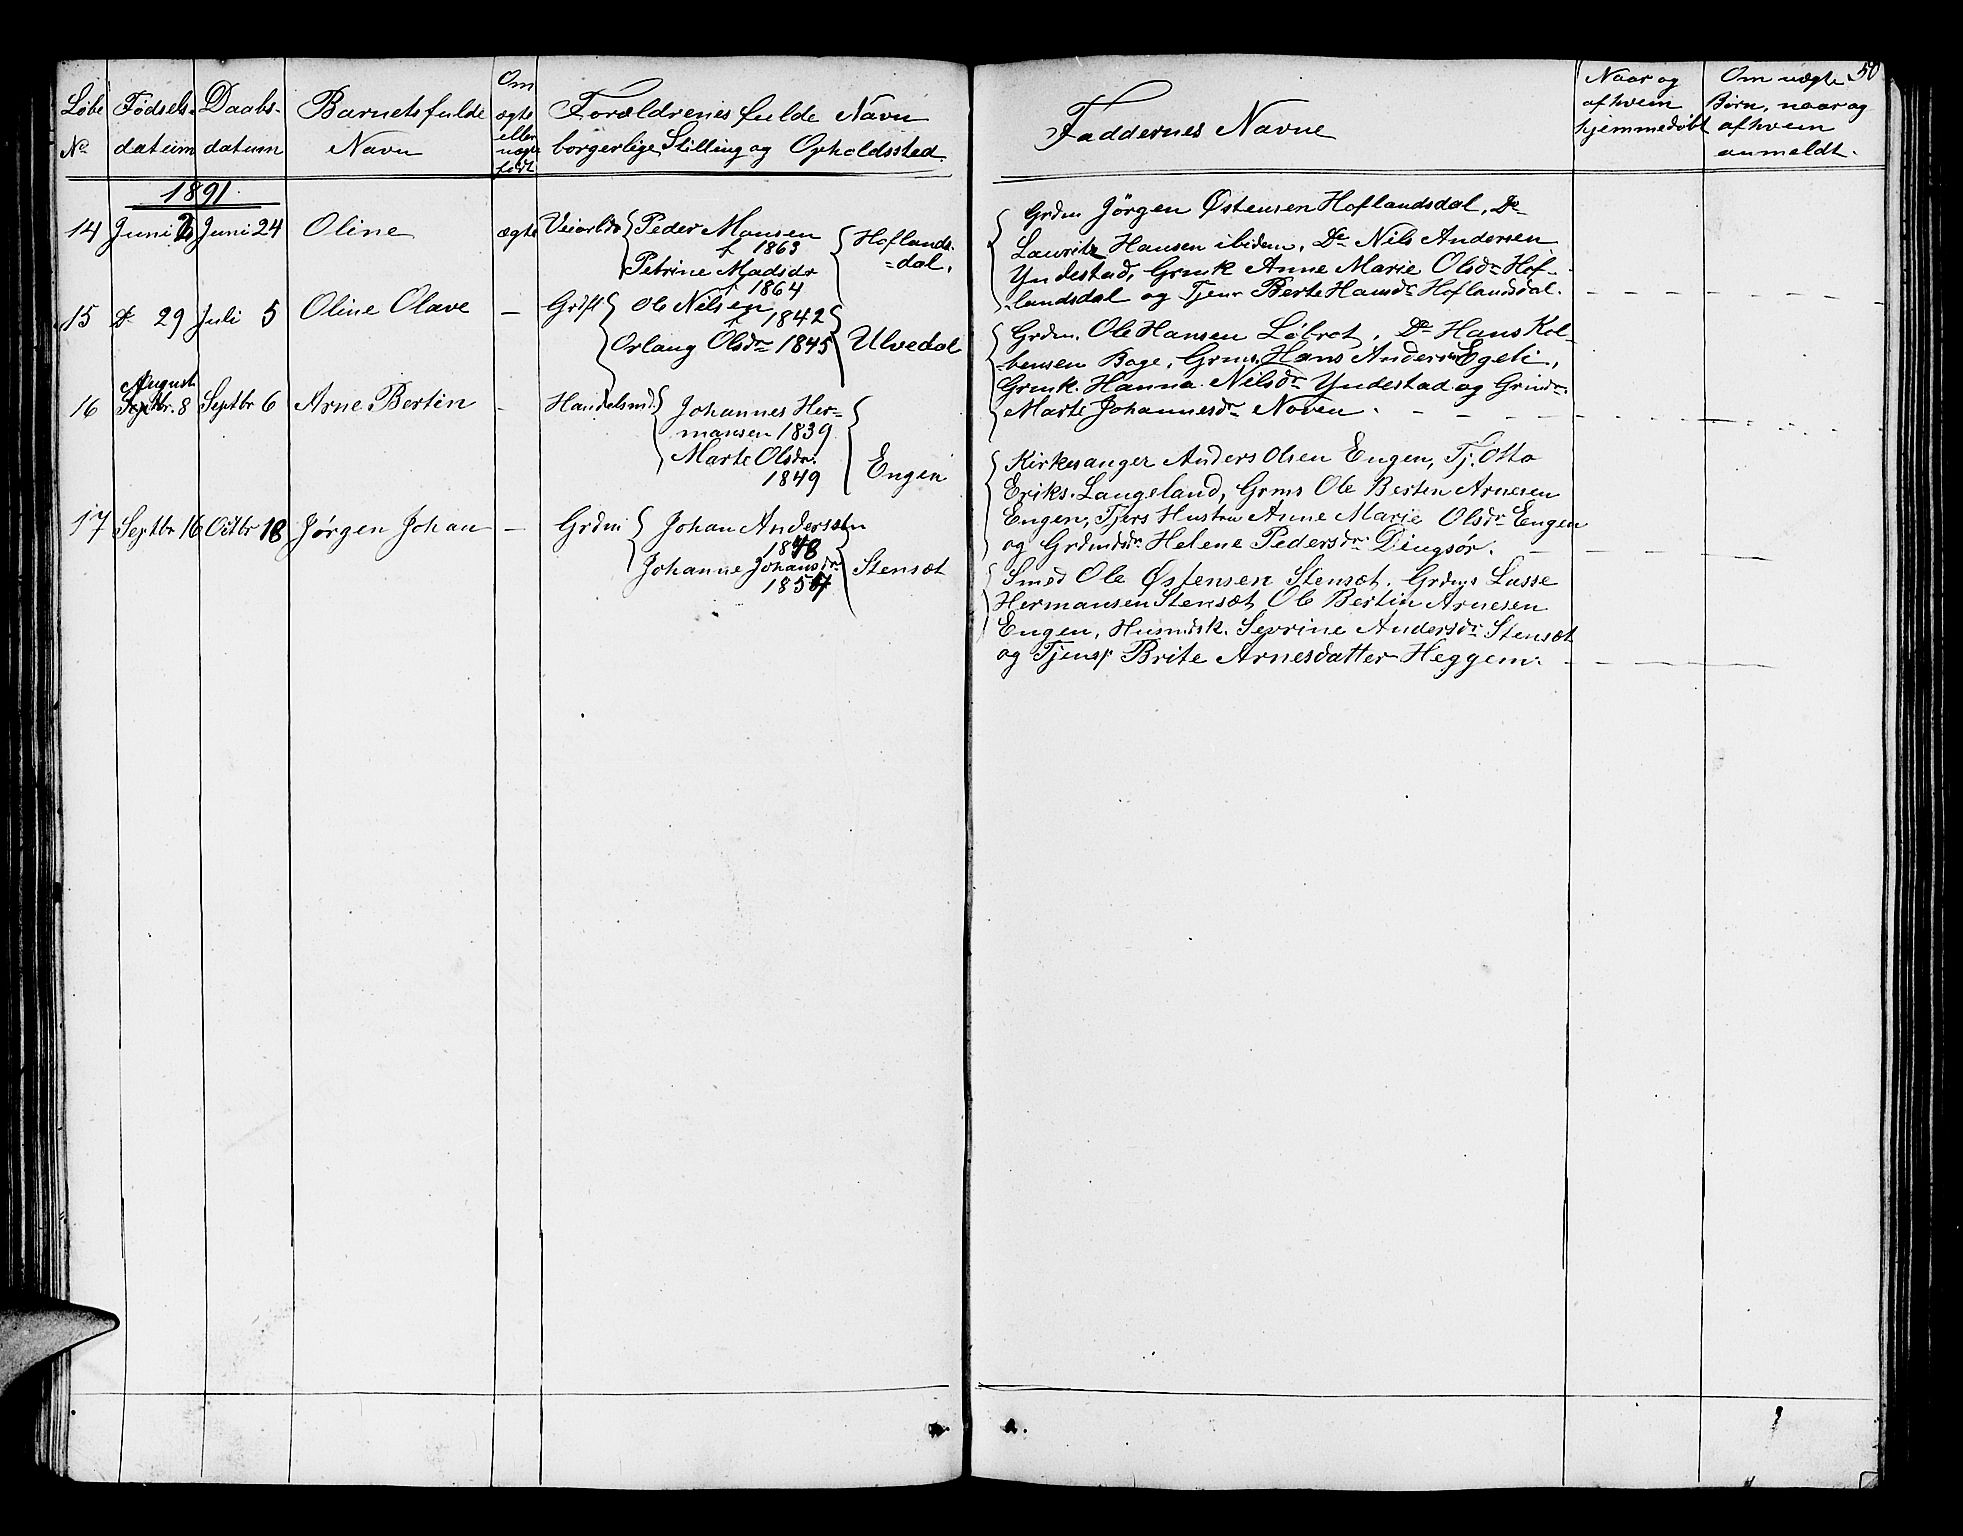 50
Løbe
No
Fødsels-
datum
Daabs-
datum
Barnets fulde
Navn
Om
ægte
eller
uægte
født
Forældrenes fulde Navn
borgerlige Stilling og Opholdssted
Faddernes Navne
Naar og
af hvem
hjemmedøbt
Om uægte
Børn, naar og
af hvem
anmeldt.
1891.
14 Juni 2 Juni 24 Oline ægte
Peder Monsen
f 1863
Petrine Madsdr
f 1864
Hoflands-
=dal.
Grdm Jörgen Østensen Hoflandsdal, Do
Lauritz Hansen ibidem, Do Nils Andersen
Yndestad, Grmk Anne Marie Olsdr Hof-
landsdal og Tjenr Berte Hansdr Hoflandsdal.
15 Do 29 Juli 5 Oline Olave —
Ole Nilsen
f 1842
Orlaug Olsdr 1845
Ulvedal
Grdm. Ole Hansen Löbret, Do Hans Kol-
bensen Boge, Grms. Hans Andersen Egeli,
Grmk. Hanna Nilsdr Yndestad og Grmdr
Marte Johannesdr Noven.
16 August
Septbr. 8 Septbr 6 Arne Bertin — Handelsmd.
Johannes Her=
mansen 1839
Marte Olsdr.
1849
Engen
Kirkesanger Anders Olsen Engen, Tj. Otto
Eriks. Langeland, Grms Ole Bertin Arnesen
Engen, Tjers Hustru Anne Marie Olsdr Engen
og Grdmdsdr Helene Pedersdr Dingsör.
17 Septbr 16 Octbr 18 Jørgen Johan — Grdm
Johan Andersen
1848
Johanne Johansdr
1857
Stensæt
Smed Ole Østensen Stensæt. Grdms Lasse
Hermansen Stensæt Ole Bertin Arnesen
Engen, Husmdsk. Sevrine Andersdr Stensæt
og Tjensp Brite Arnesdatter Heggem.